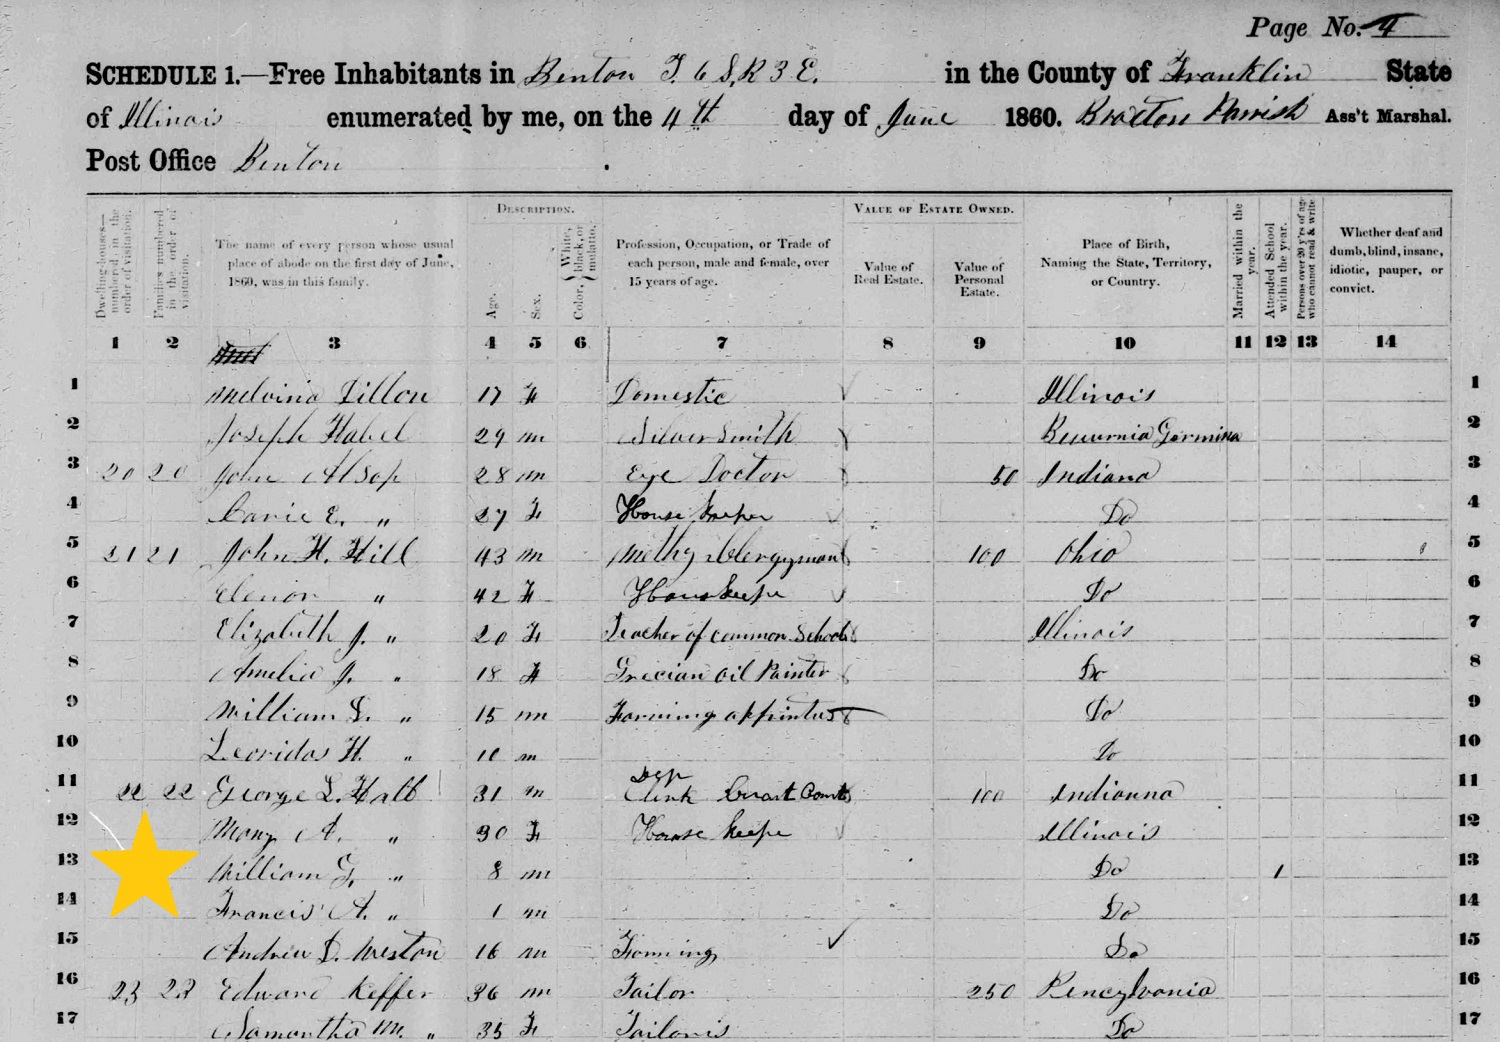 Page No. 4
SCHEDULE 1.—Free Inhabitants in Benton T. 6 S, R 3 E. in the County of Franklin State
of Illinois enumerated by me, on the 4th day of June 1860. Braxton Parrish Ass't Marshal.
Post Office Benton
DESCRIPTION. VALUE OF ESTATE OWNED.
Dwelling-houses—numbered in the order of visitation.
Families numbered in the order of visitation.
The name of every person whose usual place of abode on the first day of June, 1860, was in this family.
Age.
Sex.
Color, White, black, or mulatto.
Profession, Occupation, or Trade of each person, male and female, over 15 years of age.
Value of Real Estate.
Value of Personal Estate.
Place of Birth, Naming the State, Territory, or Country.
Married within the year.
Attended School within the year.
Persons over 20 y'rs of age who cannot read & write.
Whether deaf and dumb, blind, insane, idiotic, pauper, or convict.
1 2 3 4 5 6 7 8 9 10 11 12 13 14
1 Melvina Dillon 17 F Domestic Illinois 1
2 Joseph Habel 29 m Silver Smith Germina 2
3 20 20 John Alsop 28 m Eye Doctor 50 Indiana 3
4 E. " 27 F House keeper Do 4
5 21 21 John H. Hill 43 m Meth Clergyman 100 Ohio 5
6 Elenor " 42 F Housekeepe Do 6
7 Elizabeth J. " 20 F Teacher of common Schools Illinois 7
8 Amelia J. " 18 F Grecian oil Painter Do 8
9 William S. " 15 m Farming apprintus Do 9
10 Leonidas H. " 10 m Do 10
11 22 22 George L. Hall 31 m Dep Clerk Court 100 Indianna 11
12 Mary A. " 30 F House keepe Illinois 12
13 William G. " 8 m Do 1 13
14 Francis A. " 1 m Do 14
15 Andrew D. Weston 16 m Farming Do 15
16 23 23 Edward Keffer 36 m Tailor 250 Pencylvania 16
17 Samantha M. " 35 F Tailoris Do 17